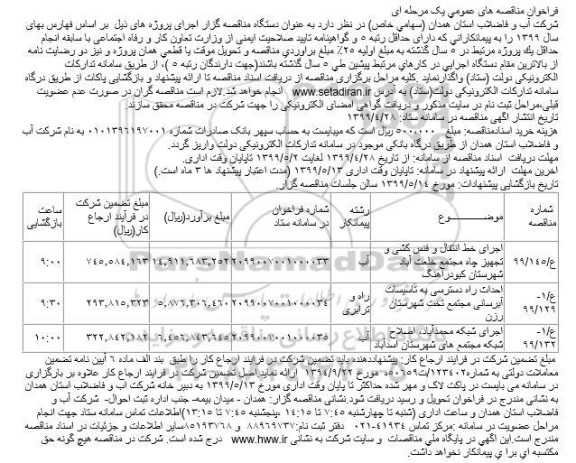 فراخوان مناقصه های عمومی یک مرحله ای
شرکت آب و فاضلاب استان همدان (سهامي خاص) در نظر دارد به عنوان دستگاه مناقصه گزار اجرای پروژه های ذیل بر اساس فهارس بهای
سال ۱۳۹۹ را به پیمانکارانی که دارای حداقل رتبه ۵ و گواهینامه تایید صلاحیت ایمنی از وزارت تعاون کار و رفاه اجتماعی با سابقه انجام
حداقل یك پروژه مرتبط در ۵ سال گذشته به مبلغ اولیه ۲۵٪ مبلغ برآوردي مناقصه و تحویل موقت یا قطعي همان پروژه و نیز دو رضایت نامه
از بالاترین مقام دستگاه اجرایی در کارهاي مرتبط پیشین طي ۵ سال گذشته باشند(جهت دارندگان رتبه ۵ )، از طریق سامانه تدارکات
الکترونیکی دولت (ستاد) واگذارنماید .کلیه مراحل برگزاری مناقصه از دریافت اسناد مناقصه تا ارائه پیشنهاد و بازگشایی پاکات از طریق درگاه
سامانه تدارکات الکترونیکی دولت(ستاد) به آدرس www.setadiran.ir انجام خواهد شد.لازم است مناقصه گران در صورت عدم عضویت
قبلی،مراحل ثبت نام در سایت مذکور و دریافت گواهی امضای الکترونیکی را جهت شرکت در مناقصه محقق سازند.
تاریخ انتشار آگهی مناقصه در سامانه ستاد: ۱۳۹۹/۴/۲۸
هزینه خرید اسنادمناقصه: مبلغ ۵۰۰.۰۰۰ ریال است که میبایست به حساب سپهر بانک صادرات شماره ۰۱۰۱۳۹۶۱۹۷۰۰۱ به نام شرکت آب
و فاضلاب استان همدان از طریق درگاه بانکی موجود در سامانه تدارکات الکترونیکی دولت واریز گردد.
مهلت دریافت اسناد مناقصه از سامانه: از تاریخ ۱۳۹۹/۴/۲۸ لغایت ۱۳۹۹/۵/۲ تاپایان وقت اداری.
آخرین مهلت ارائه پیشنهاد در سامانه: تاپایان وقت اداری ۱۳۹۹/۵/۱۳ (مدت اعتبار پیشنهاد ها ۳ ماه است.)
تاریخ بازگشایی پیشنهادات: مورخ ۱۳۹۹/۵/۱۴ سالن جلسات مناقصه گزار.
شماره مناقصه | موضوع | رشته پیمانکار | شماره فراخوان در سامانه ستاد | مبلغ برآورد(ریال) | مبلغ تضمین شرکت در فرآیند ارجاع کار(ریال) | ساعت بازگشایی
ع/۹۹/۱۴۵ | اجرای خط انتقال و فنس کشی و تجهیز چاه مجتمع خلعت آباد شهرستان کبودرآهنگ | آب | ۲۰۹۹۰۰۷۰۰۱۰۰۰۰۳۳ | ۱۴,۹۱۱,۶۸۳,۲۵۲ | ۷۴۵,۵۸۴,۱۶۳ | ۹:۰۰
ع/۱-۹۹/۱۲۹ | احداث راه دسترسی به تاسیسات آبرسانی مجتمع تخت شهرستان رزن | راه و ترابری | ۲۰۹۹۰۰۷۰۰۱۰۰۰۰۳۴ | ۵,۸۷۶,۳۰۶,۴۶۰ | ۲۹۳,۸۱۵,۳۲۳ | ۹:۳۰
ع/۱-۹۹/۱۳۲ | اجرای شبکه محمدآباد، اصلاح شبکه مجتمع های شهرستان اسدآباد | آب | ۲۰۹۹۰۰۷۰۰۱۰۰۰۰۳۵ | ۶,۴۵۶,۸۴۳,۶۴۵ | ۳۲۲,۸۴۲,۱۸۲ | ۱۰:۰۰
مبلغ تضمین شرکت در فرایند ارجاع کار: پیشنهاددهنده باید تضمین شرکت در فرایند ارجاع کار را طبق بند الف ماده ۶ آیین نامه تضمین
معاملات دولتی به شماره۱۲۳۴۰۲/ت۵۰۶۵۹ه مورخ ۱۳۹۴/۹/۲۲ ارائه نماید.اصل تضمین شرکت در فرایند ارجاع کار علاوه بر بارگزاری
در سامانه می بایست در پاکت لاک و مهر شده حداکثر تا پایان وقت اداری مورخ ۱۳۹۹/۵/۱۳ به دبیر خانه شرکت آب و فاضلاب استان همدان
به نشانی مندرج در فراخوان تحویل و رسید دریافت شود.نشانی مناقصه گزار: همدان - میدان بیمه- جنب اداره ثبت احوال- شرکت آب و
فاضلاب استان همدان و ساعت اداری (شنبه تا چهارشنبه ۷:۴۵ تا ۱۴:۱۵ ،پنجشنبه ۷:۴۵ تا ۱۳:۱۵)اطلاعات تماس سامانه ستاد جهت انجام
مراحل عضویت در سامانه :مرکز تماس ۴۱۹۳۴-۰۲۱ دفتر ثبت نام:۸۸۹۶۹۷۳۷ و ۸۵۱۹۳۷۶۸سایر اطلاعات و جزئیات در اسناد مناقصه
مندرج است.این آگهي در پایگاه ملي مناقصات و سایت شرکت به نشاني www.hww.ir درج شده است. شرکت در مناقصه هیچ گونه حق
مکتسبه ای براي پیمانکار نخواهد داشت.